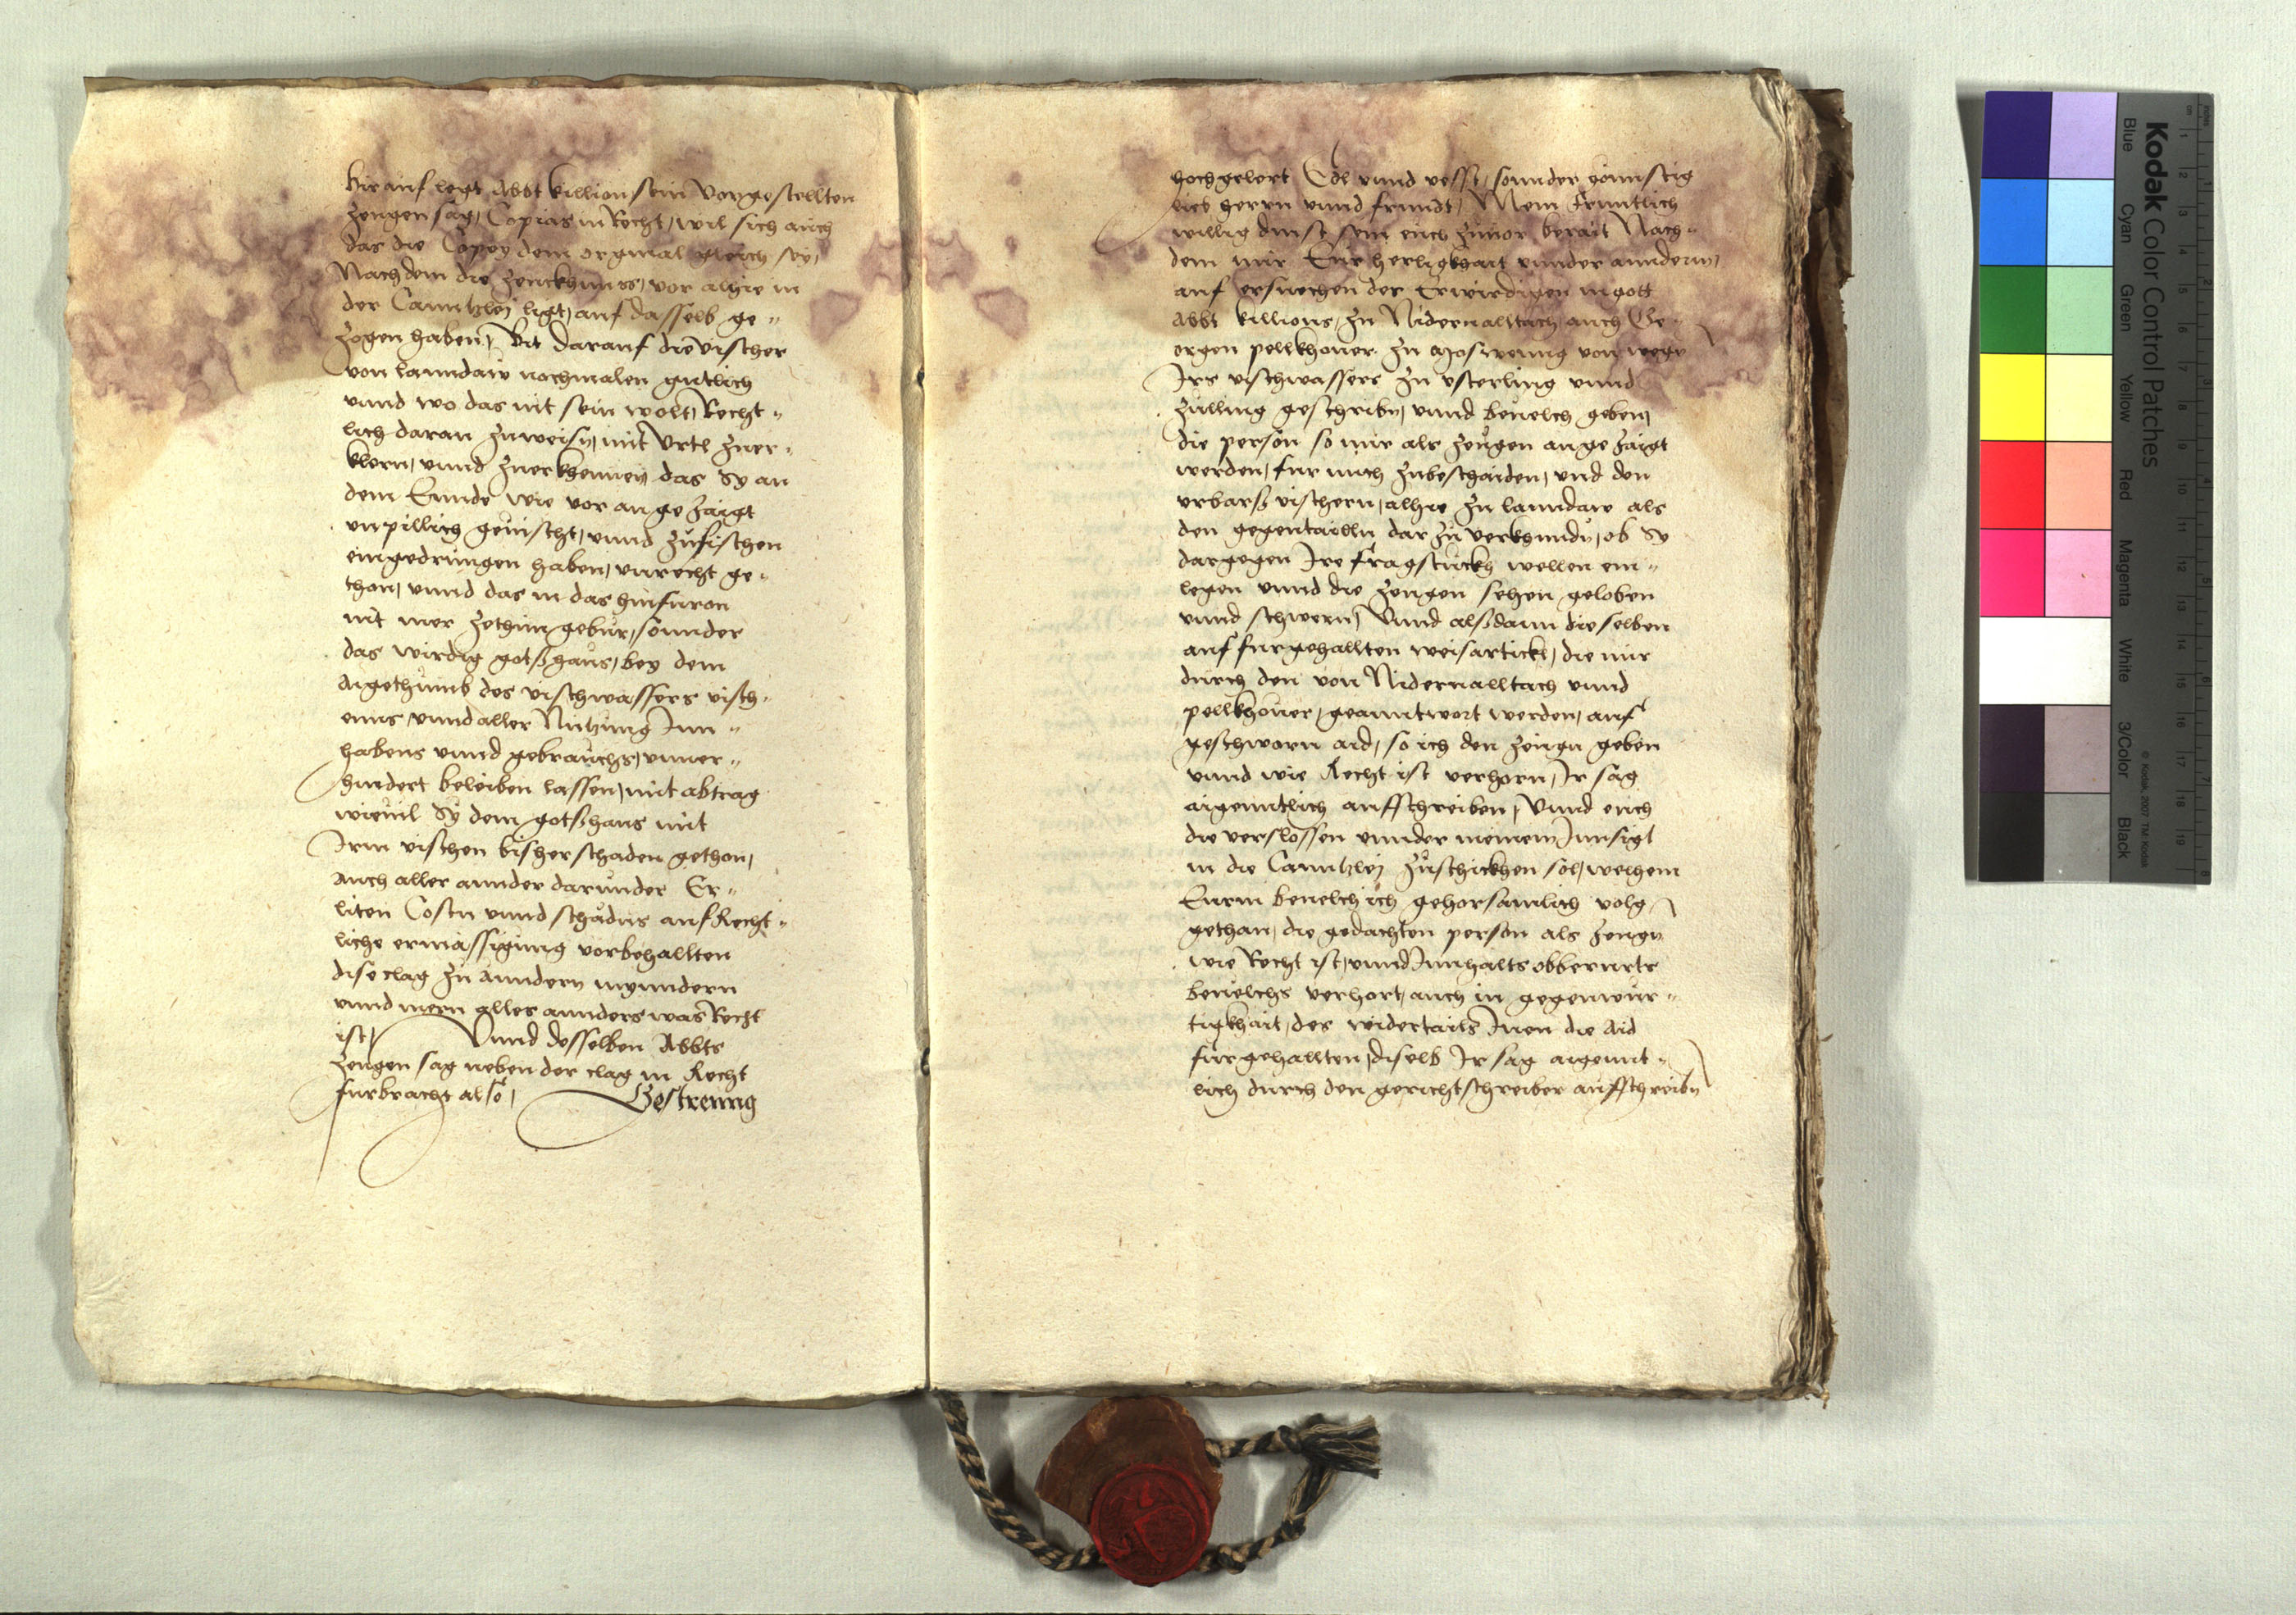 Hierauf legt Abbt Killion sein vorgestellten
zeugen sag, Copias in Recht, wil sich auch
das die Copey dem orginal gleich sey,
Nachdem die zeuckhnuss, vor alhie in
der Canntzley ligt, auf dasselb ge„
zogen haben, Bit darauf die vischer
von lanndaw nochmalen guetlich
vnnd wo das nit sein wolt, Recht„
lich daran zuweisn, mit vrtl zuer„
klern, vnnd zuerkhennen das Sy an
dem Ennde wie vor angezaigt
vnpillich geuischt, vnnd zufischen
eingedrungen haben, vnrecht ge„
thon, vnnd das in das hinfuron
nit mer zethun gebur, sonnder
das wirdig gotßhaus, bey dem
Aigethumb des vischwassers visch„
enns, vnnd aller Nutzung Inn„
habens vnnd gebrauchs, vnuer„
hindert beleiben lassen, mit abtrag
wieuil Sy dem gotßhaus mit
Irm vischen bisher schaden gethon,
auch aller annder darunder Er„
liten Costn vnnd schadns auf Recht„
liche ermassigung vorbehallten
dise clag zu anndern mynndern
vnnd mern alles annders was Recht
ist, Vnnd desselben Abbts
zeugen sag neben der clag in Recht
furbracht also, Gestrenng
hochgelert Edl vnnd vesst, sonnder gonnstig
lieb herrn vnnd freundt, Mein freuntlich
willig dinst sein euch zuuor berait Nach„
dem mir Eur herligkhait vnnder anndern,
auf ersuechen der Erwirdigen in gott
Abbt Killions zu Nidernalltach auch Ge„
orgen pellkhouer zu Moswenng von wegn
Irs vischwassers zu vsterling vnnd
zulling geschribn, vnnd beuelch geben,
die person so mir als zeugen angezaigt
werden, fur mich zubeschaiden, vnd den
erbarn vischern, alhie zu lanndaw als
den gegentailln dar zu verkhundn, ob Sy
dargegen Ire fragstuckh wellen ein„
legen vnnd die zeugen sehen geloben
vnnd schwern, Vnnd alßdann dieselben
auf furgehallten weisartickl, die mir
durch den von Nidernalltach vnnd
pellkhouer, geanntwort werden, auf
geschworn aid, so ich den zeugn geben
vnnd wie Recht ist verhorn, Ir sag
aigenntlich aufschreiben, Vnnd euch
die verslossen vnnder meinem Innsigl
in die Canntzley zuschickhen sol, welhem
Eurm beuelch ich gehorsamlich volg
gethan, die gedachten person als zeugn
wie Recht ist, vnnd Innhalts obberurts
beuelchs verhort, auch in gegenwur„
tigkhait, des widertails Inen die Aid
furgehallten, dieselb Ir sag aigennt„
lich durch den gerichtschreiber aufschreibn
Kodak Color Control Patches
Blue Cyan Green Yellow Red Magenta White 3/Color Black
© Kodak, 2007 TM: Kodak